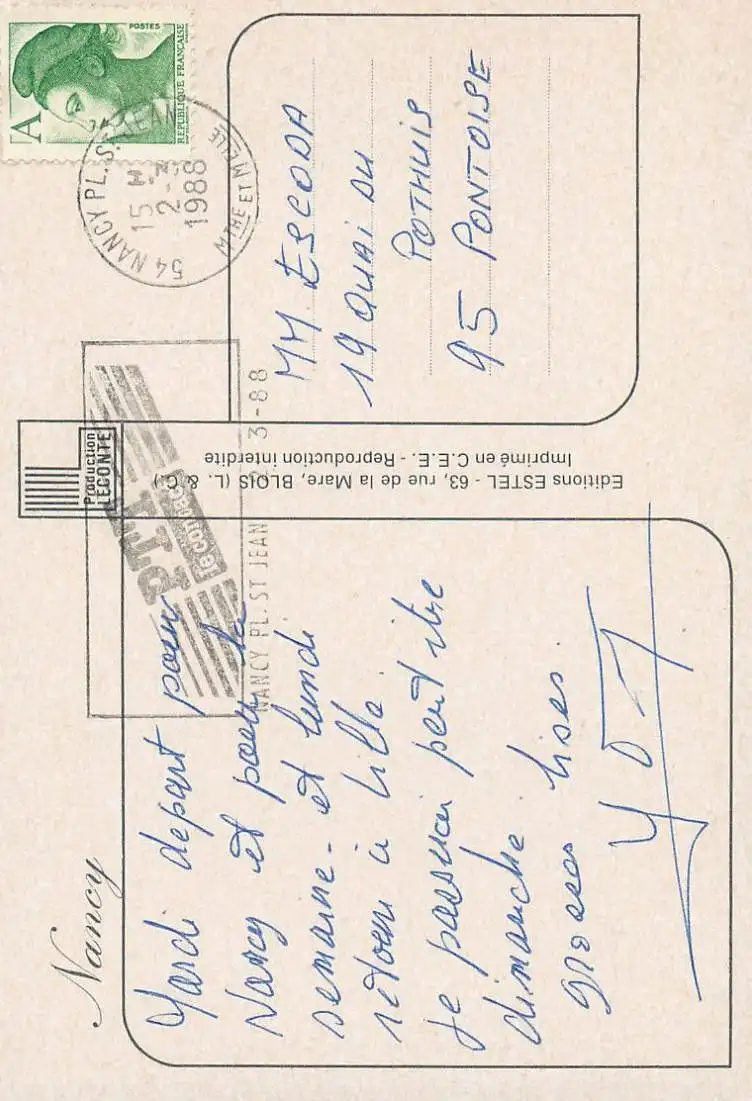 Nancy
Mardi depart pour
Nancy et pour la
semaine - et lundi
retour à Lille
je passerai peut être
dimanche
grosses bises.
Production
LECONTE
Editions ESTEL - 63, rue de la Mare, BLOIS (L. & C.)
Imprimé en C.E.E. - Reproduction interdite
POSTES
A
REPUBLIQUE FRANÇAISE
54 NANCY PL. ST JEAN
15 H
2-3
1988
MTHE ET MELLE
PTT
NANCY PL. ST JEAN 2 3-88
MM. ESCODA
19 QUAI DU
POTHUIS
95 PONTOISE